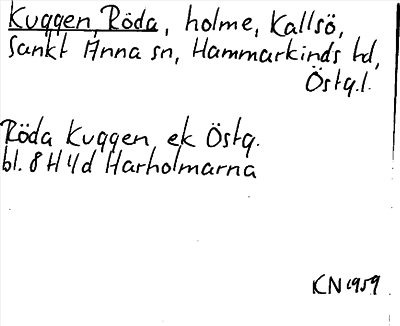 Kuggen, Röda, holme, Kallsö,
Sankt Anna sn, Hammarkinds hd,
Östg.l.
Röda Kuggen, ek Östg.
bl. 8 H 4d Harholmarna
KN 1959